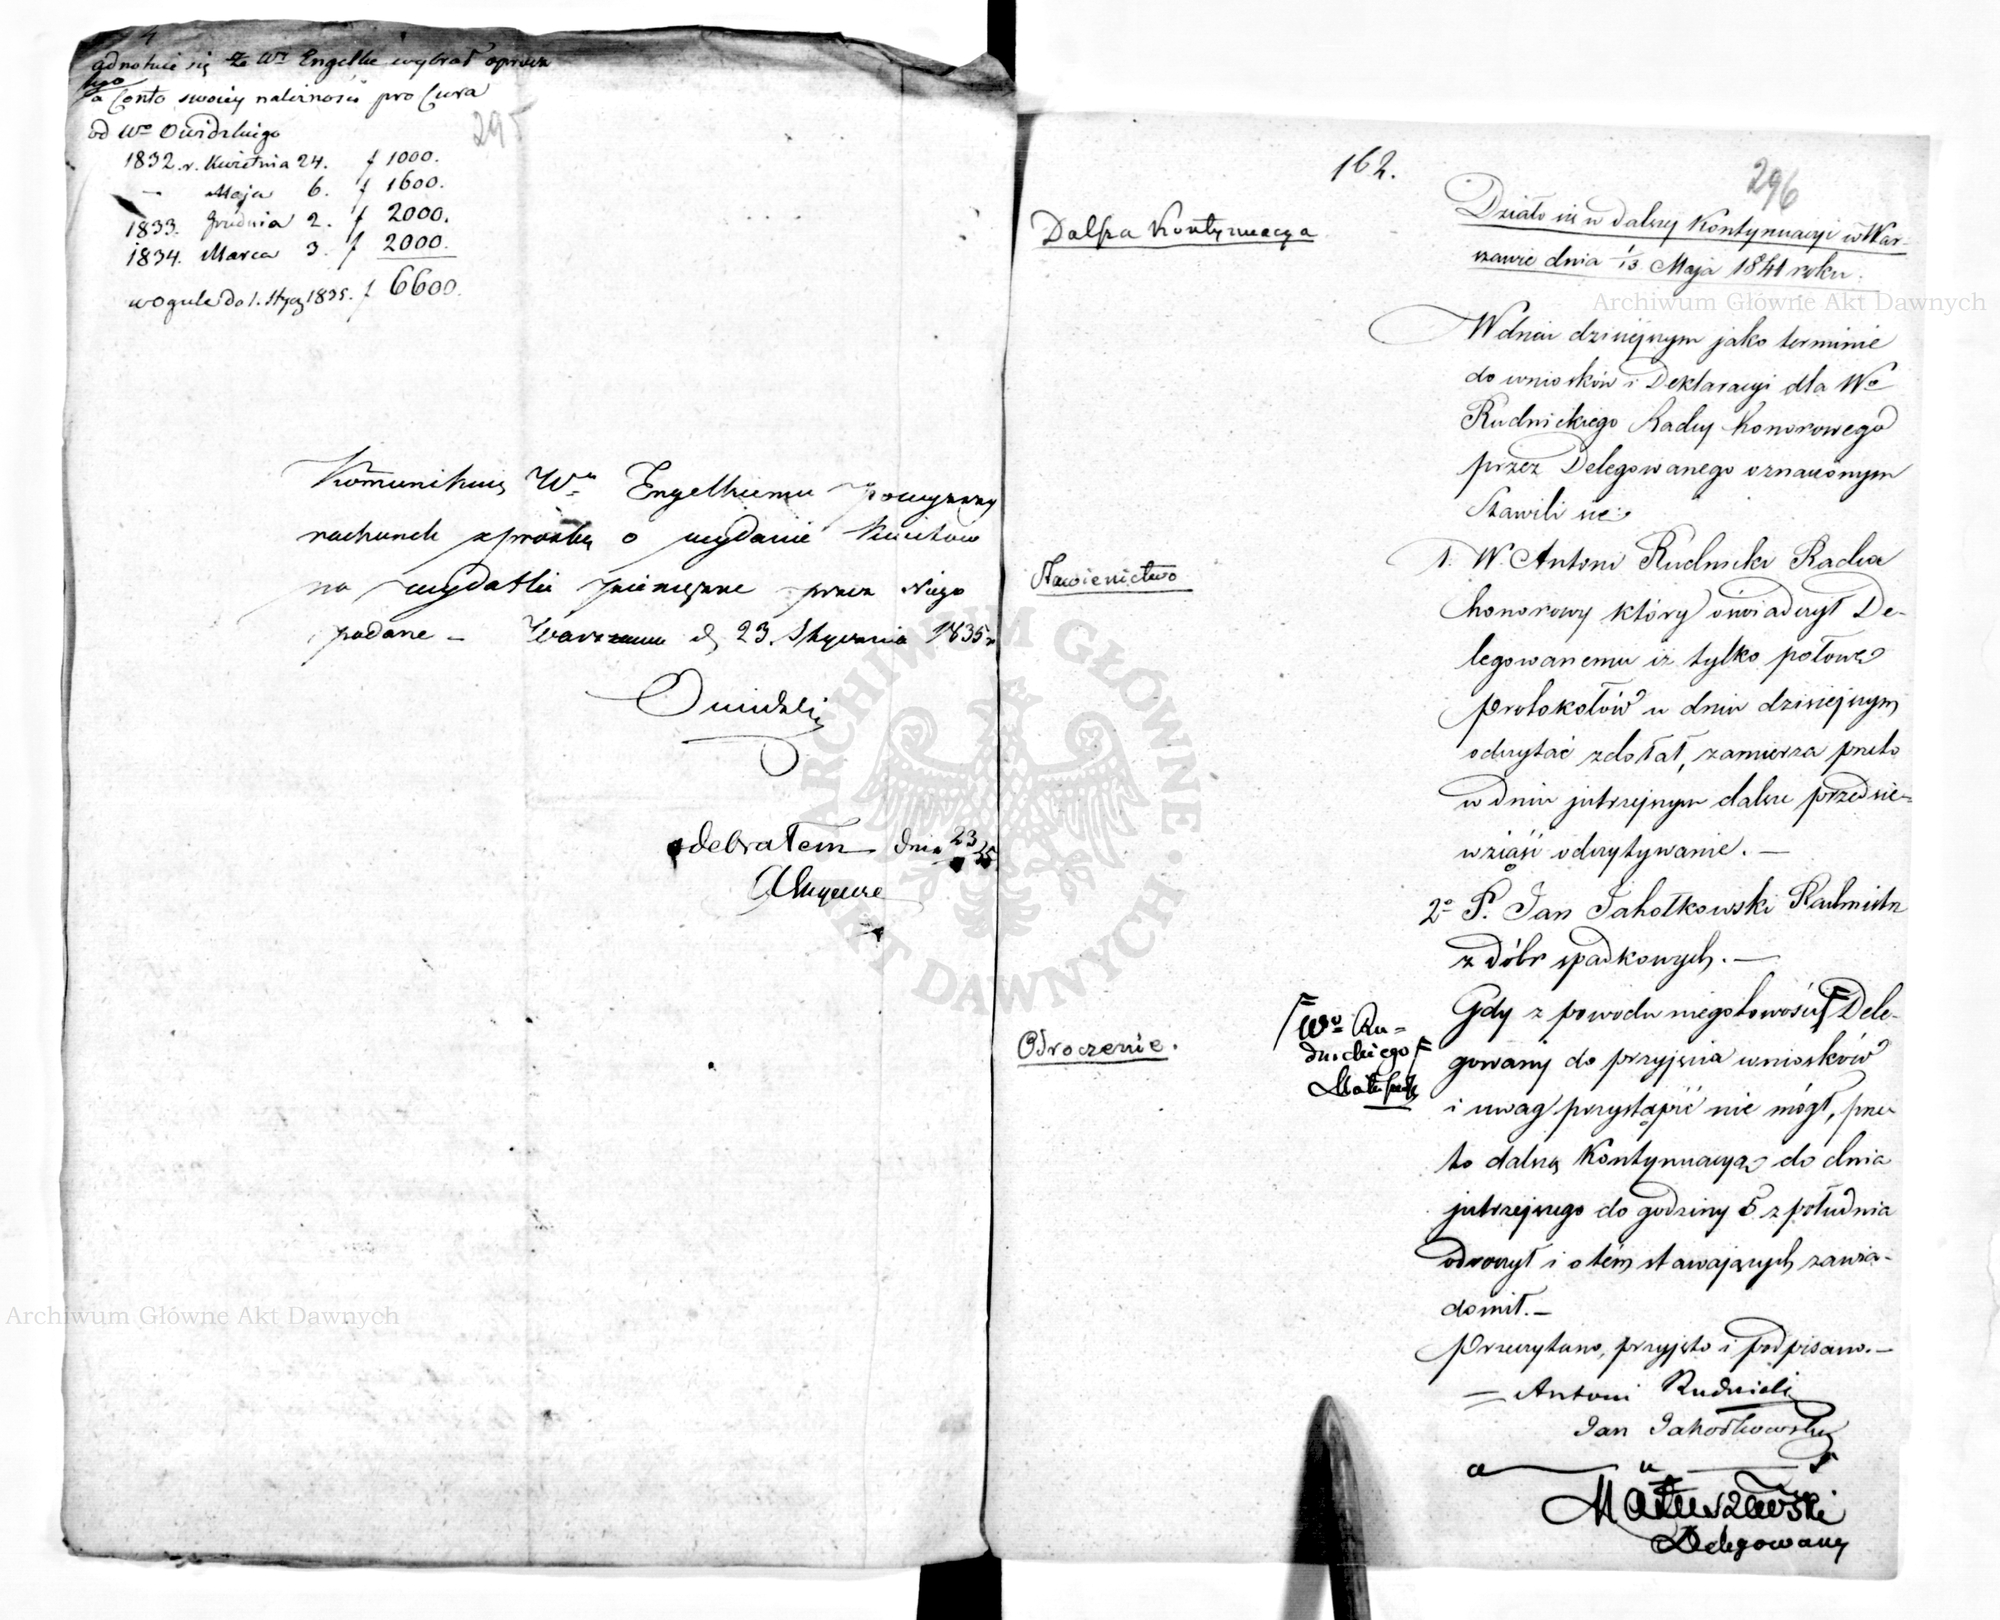 4
adnotuie się że Wny Engelke wybrał oprocz
tego
a Conto swoiey należnosci pro Cura
od Wo Owidzkiego
295
1832. r. Kwietnia 24. f 1000.
— Maja 6. f 1600.
1833. Grudnia 2. f 2000.
1834. Marca 3. f 2000.
wogule do 1. Stycz 1835. f 6600.
Kommunikuię Wmu Engelkiemu powyższy
rachunek z prosbą o wydanie kwitow
na wydatki pieniężne przez Niego
podane – Warszawa d. 23. Stycznia 1835 r
Owidzki
odebrałem dnia 23/1 35.
162.
296
Dalsza Kontynuacya
Działo się w dalszey Kontynuacyi w War-
szawie dnia 1/13 Maja 1841 roku.
W dniu dzisiejszym jako terminie
do wniosków i Deklaracyi dla Wo
Rudnickiego Radcy honorowego
przez Delegowanego oznaczonym
Stawili się:
Stawiennictwo
1. W. Antoni Rudnicki Radca
honorowy który oświadczył De-
legowanemu iż tylko połowę
protokołów w dniu dzisiejszym
odczytać zdołał, zamierza przeto
w dniu jutrzejszym dalsze przedsie-
wziąść odczytywanie. —
2o P. Jan Jakołkowski Rachmistrz
z dóbr spadkowych. —
Odroczenie.
Wo Ru-
dnickiego
Gdy z powodu niegotowości Dele-
gowany do przyjęcia wniosków
i uwag przystąpić nie mógł, prze
to dalszą Kontynuacyą do dnia
jutrzejszego do godziny 5 z południa
odroczył i o tém stawających zawia-
domił. —
Przeczytano, przyjęto i podpisano. —
= Antoni Rudnicki
Jan Jakołkowski
Matuszewski
Delegowany
Archiwum Główne Akt Dawnych
Archiwum Główne Akt Dawnych
ARCHIWUM GŁÓWNE AKT DAWNYCH